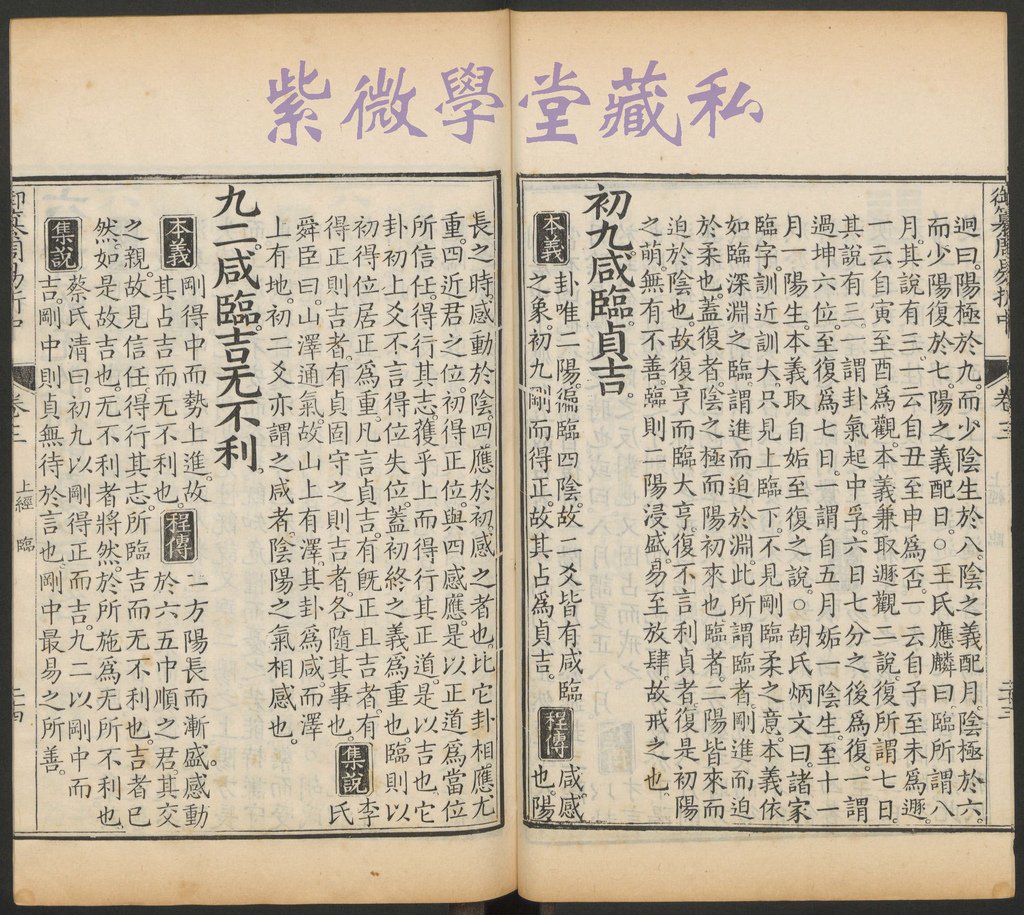 紫微學堂藏私
御纂周易折中
卷三
迥曰。陽極於九。而少陰生於八。陰之義配月。陰極於六。
而少陽復於七。陽之義配日。○王氏應麟曰。臨所謂八
月。其說有三。一云自丑至申為否。一云自子至未為遯。
一云自寅至酉為觀。本義兼取遯觀二說。復所謂七日。
其說有三。一謂卦氣起中孚。六日七分之後為復。一謂
過坤六位。至復為七日。一謂自五月姤一陰生。至十一
月一陽生。本義取自姤至復之說。○胡氏炳文曰。諸家
臨字。訓近訓大。只見上臨下。不見剛臨柔之意。本義依
如臨深淵之臨。謂進而迫於淵。此所謂臨者。剛進而迫
於柔也。蓋復者。陰之極而陽初來也。臨者。二陽皆來而
迫於陰也。故復亨而臨大亨。復不言利貞者。復是初陽
之萌。無有不善。臨則二陽浸盛。易至放肆。故戒之也。
初九咸臨貞吉。
本義 卦唯二陽。徧臨四陰。故二爻皆有咸臨 程傳 咸感
之象。初九剛而得正。故其占為貞吉。 也。陽
長之時。感動於陰。四應於初。感之者也。比它卦相應尤
重。四近君之位。初得正位。與四感應。是以正道為當位
所信任。得行其志。獲乎上而得行其正道。是以吉也。它
卦初上爻不言得位失位。蓋初終之義為重也。臨則以
初得位居正為重。凡言貞吉。有既正且吉者。有
得正則吉者。有貞固守之則吉者。各隨其事也。 集說 李氏
舜臣曰。山澤通氣。故山上有澤。其卦為咸。而澤
上有地。初二爻亦謂之咸者。陰陽之氣相感也。
九二咸臨吉无不利。
本義 剛得中而勢上進。故 程傳 二方陽長而漸盛。感動
其占吉而无不利也。 於六五中順之君。其交
之親。故見信任。得行其志。所臨吉而无不利也。吉者已
然。如是故吉也。无不利者將然。於所施為无所不利也。
集說 蔡氏清曰。初九以剛得正而吉。九二以剛中而
吉。剛中則貞無待於言也。剛中最易之所善。
御纂周易折中
卷三
上經 臨